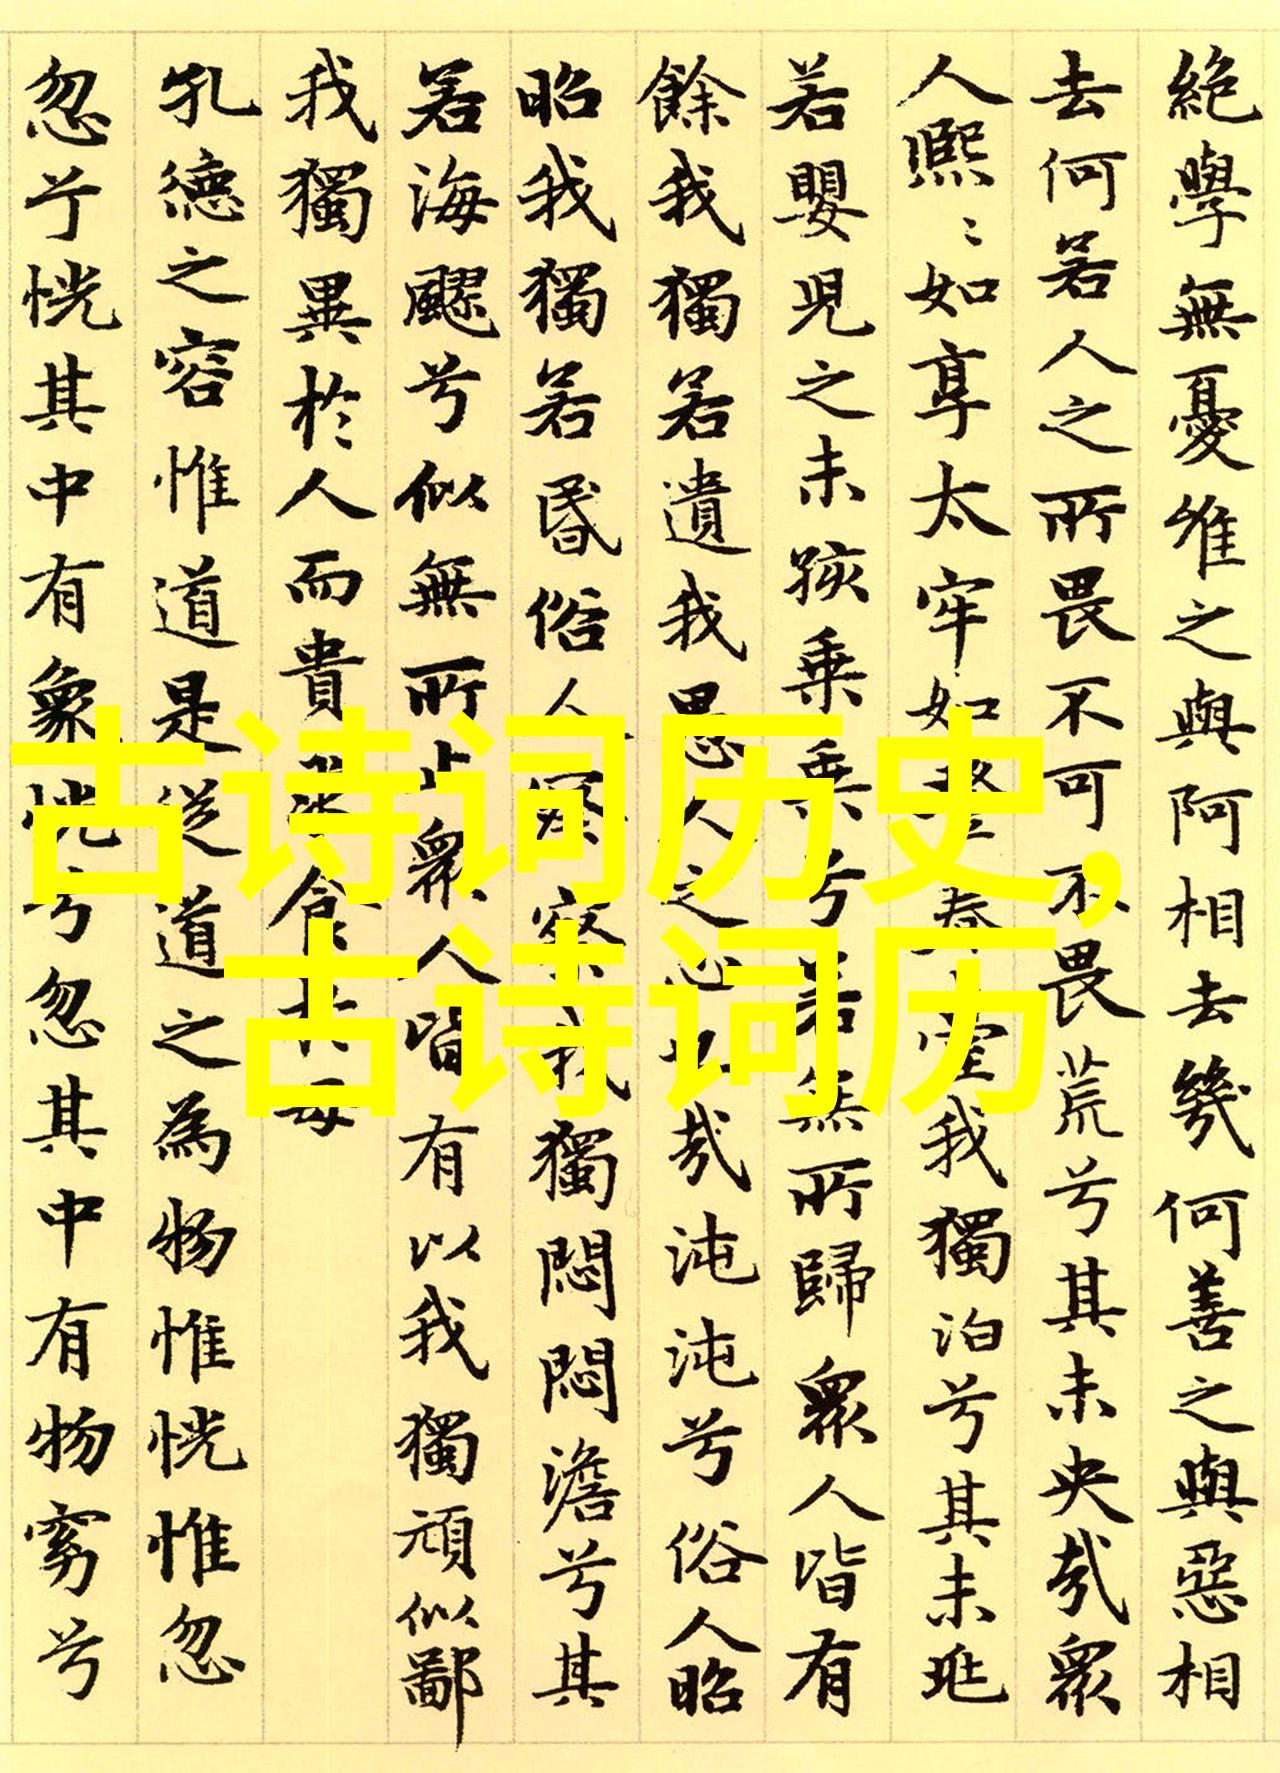 絶學無憂唯之與阿相去幾何善之與惡相
去何若人之所畏不可不畏荒兮其未央哉眾
人熙〻如享太牢如登春臺我獨泊兮其未兆
若嬰兒之未孩乘乘兮若無所歸眾人皆有
餘我獨若遺我愚人之心也哉沌沌兮俗人昭
昭我獨若昏俗人察察我獨悶悶澹兮其
若海飂兮似無所止眾人皆有以我獨頑似鄙
我獨異於人而貴求食於母
孔德之容惟道是從道之為物惟恍惟忽
忽兮恍其中有象恍兮忽其中有物窈兮
古诗词历史，
古诗词历